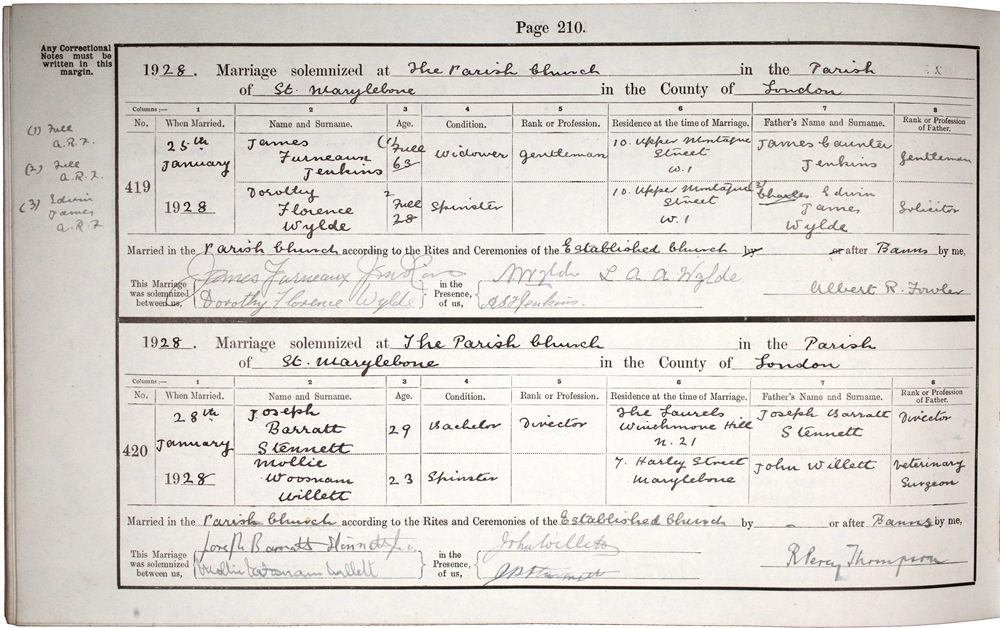 Page 210.
Any Correctional
Notes must be
written in this
margin.
1928. Marriage solemnized at The Parish Church in the Parish
of St. Marylebone in the County of London
Columns :— 1 2 3 4 5 6 7 8
No. When Married. Name and Surname. Age. Condition. Rank or Profession. Residence at the time of Marriage. Father's Name and Surname. Rank or Profession of Father.
(1) Full
a.R.F.
(2) Full
a.R.F.
(3) Edwin
James
a.R.F
419
25th
January
1928
James
Furneaux
Jenkins
(1) Full
63
Widower
Gentleman
10. Upper Montague
Street
W.1
James Gaunter
Jenkins
Gentleman
Dorothy
Florence
Wylde
2
Full
28
Spinster
10. Upper Montague
Street
W.1
3) Charles Edwin
James
Wylde
Solicitor
Married in the Parish Church according to the Rites and Ceremonies of the Established Church by or after Banns by me,
This Marriage
was solemnized
between us,
James Furneaux Jenkins
Dorothy Florence Wylde
in the
Presence,
of us,
Wylde L A A Wylde
Jenkins.
Albert R. Fowler
1928. Marriage solemnized at The Parish Church in the Parish
of St. Marylebone in the County of London
Columns :— 1 2 3 4 5 6 7 8
No. When Married. Name and Surname. Age. Condition. Rank or Profession. Residence at the time of Marriage. Father's Name and Surname. Rank or Profession of Father.
420
28th
January
1928
Joseph
Barratt
Stennett
29
Bachelor
Director
The Laurels
Winchmore Hill
N. 21
Joseph Barratt
Stennett
Director
Mollie
Woosnam
Willett
23
Spinster
7. Harley Street
Marylebone
John Willett
Veterinary
Surgeon
Married in the Parish Church according to the Rites and Ceremonies of the Established Church by - or after Banns by me,
This Marriage
was solemnized
between us,
Joseph Barratt Stennett jr.
Mollie Woosnam Willett
in the
Presence,
of us,
John Willett
R Percy Thompson